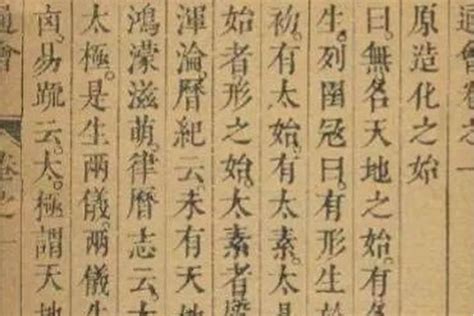 通會卷之一
原造化之始
曰。無名天地之始。有名
生。列圄冦曰。有形生於
初。有太始。有太素。太
始者形之始。太素者
渾淪。曆紀云。未有天
鴻濛滋萌。律曆志云。太
太極。是生兩儀。兩儀生
易䟽云。太極謂天地
通會 卷之一